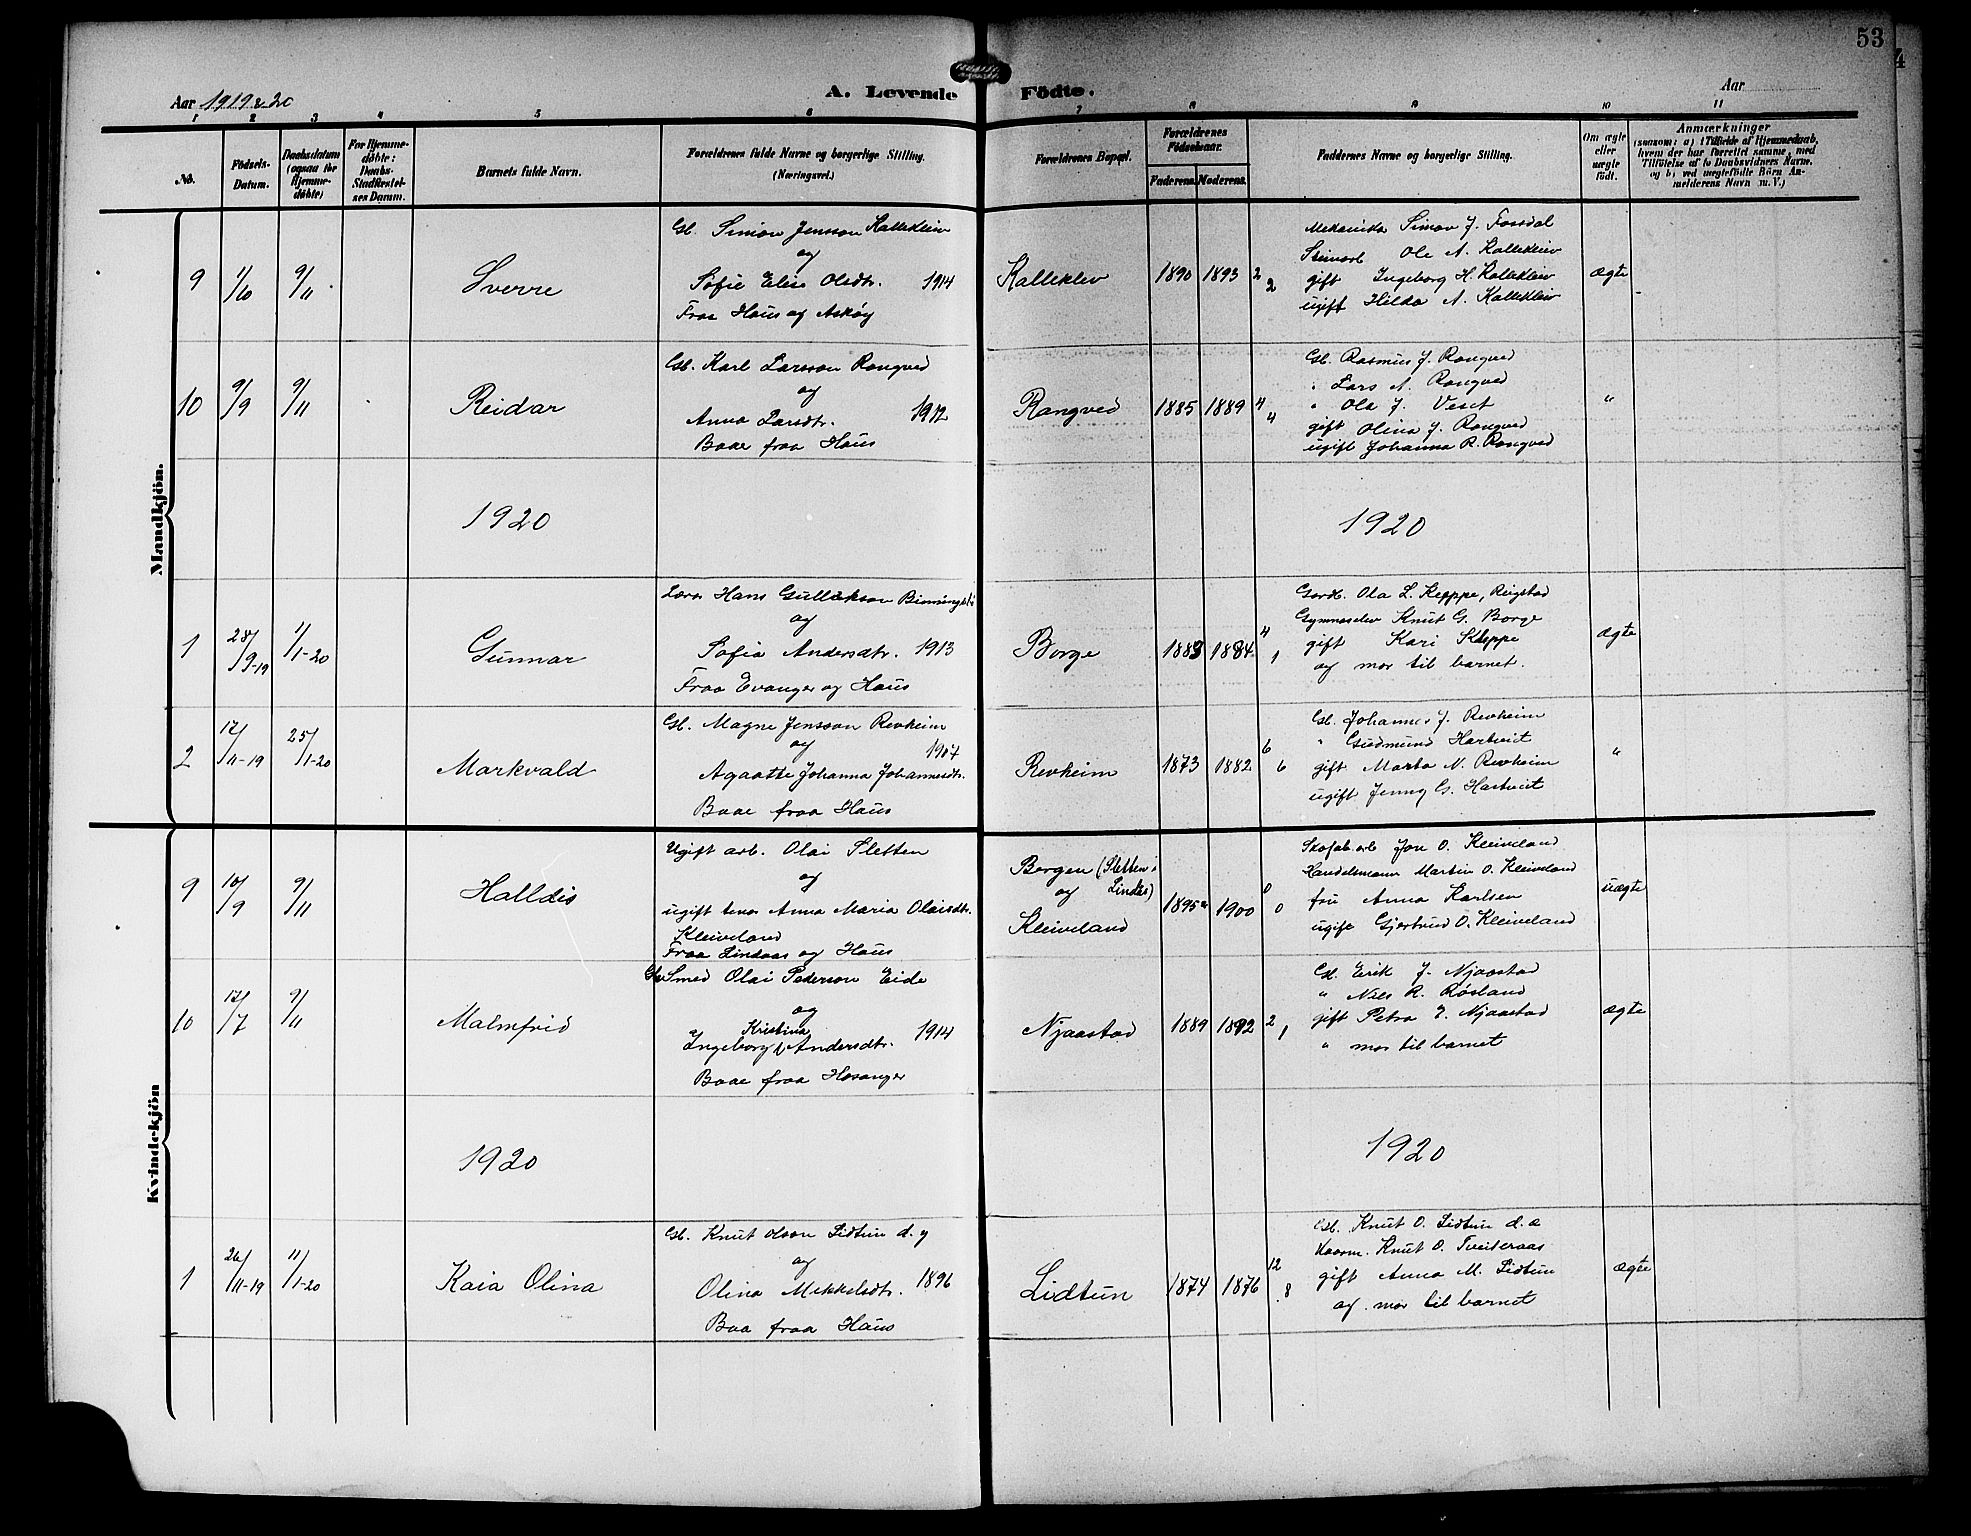 53
Aar 1919 & 20
A. Levende Födte.
Aar
1 2 3 4 5 6 7 8 9 10 11
No.
Födsels-Datum.
Daabsdatum (ogsaa for Hjemme-döbte)
For Hjemme-döbte: Daabs-Stadfæstel-ses Datum.
Barnets fulde Navn.
Forældrenes fulde Navne og borgerlige Stilling.
(Næringsvei.)
Forældrenes Bopæl.
Forældrenes Födselsaar.
Faderens. Moderens.
Faddernes Navne og borgerlige Stilling.
Om ægte eller uægte födt.
Anmærkninger
(saasom: a) i Tilfælde af Hjemmedaab, hvem der har forrettet samme, med Tilföielse af to Daabsvidners Navne, og b) ved uægtefödte Börn An-melderens Navn m. V.)
Mandkjön.
9 1/10 9/11 Sverre
Gb. Simon Jensson Kalleklev
og
Sofie Elise Olsdtr. 1914
Fraa Haus og Askøy
Kalleklev 1890 1893 2 2
Mekanikar Simon J. Fossdal
Ole A. Kalleklev
gift Ingeborg H. Kalleklev
ugift Hilda A. Kalleklev
ægte
10 9/9 9/11 Reidar
Gb. Karl Larsson Rongved
og
Anna Larsdtr. 1912
Baae fraa Haus
Rongved 1885 1889 4 4
Gb. Rasmus J. Rongved
" Lars A. Rongved
" Ola J. Veset
gift Olina J. Rongved
ugift Johanna R. Rongved
"
1920
1920
1 28/9-19 11/1-20 Gunnar
Lærar Hans Gullakson
og
Sofia Andersdtr. 1913
Fraa Evanger og Haus
Borge 1883 1884 4 1
Gardb. Ola L. Kleppe, Reigstad
Gymnaselev Knut G. Borge
gift Kari Kleppe
og mor til barnet.
ægte
2 17/11-19 25/1-20 Markvald
Gb. Magne Jensson Revheim
og 1907
Agaatte Johanna Johannesdtr.
Baae fraa Haus
Revheim 1873 1882 6 6
Gb. Johannes J. Revheim
" Gudmund Hartveit
gift Marta N. Revheim
ugift Jenny G. Hartveit
"
Kvindekjön
9 10/9 9/11 Halldis
Ugift arb. Olai Sletten
og
ugift tenar Anna Maria Olaisdtr.
Kleiveland
Fraa Lindaas og Haus
Bergen (Sletten i
og Lindås)
Kleiveland
1895 1900 0 0
Skofab.arb Jon O. Kleiveland
Handelsmann Martin O. Kleiveland
fru Anna Karlsen
ugift Gjertrud O. Kleiveland
uægte
10 17/7 9/11 Malmfrid
Smed Olai Pederson Eide
og
Kristina
Ingeborg Andersdtr. 1914
Baae fraa Hosanger
Njaastad 1889 1892 2 1
Gb. Erik J. Njaastad
" Nils R. Røsland
gift Petra J. Njaastad
" mor til barnet
ægte
1920
1920
1 26/11-19 11/1-20 Kaia Olina
Gb. Knut Olson Lidtun d. y
og
Olina Mikkelsdtr. 1896
Baa fraa Haus
Lidtun 1874 1876 12 8
Gb. Knut O. Lidtun d. e
Kaarm. Knut O. Tveiteraas
gift Anna M. Lidtun
og mor til barnet
ægte